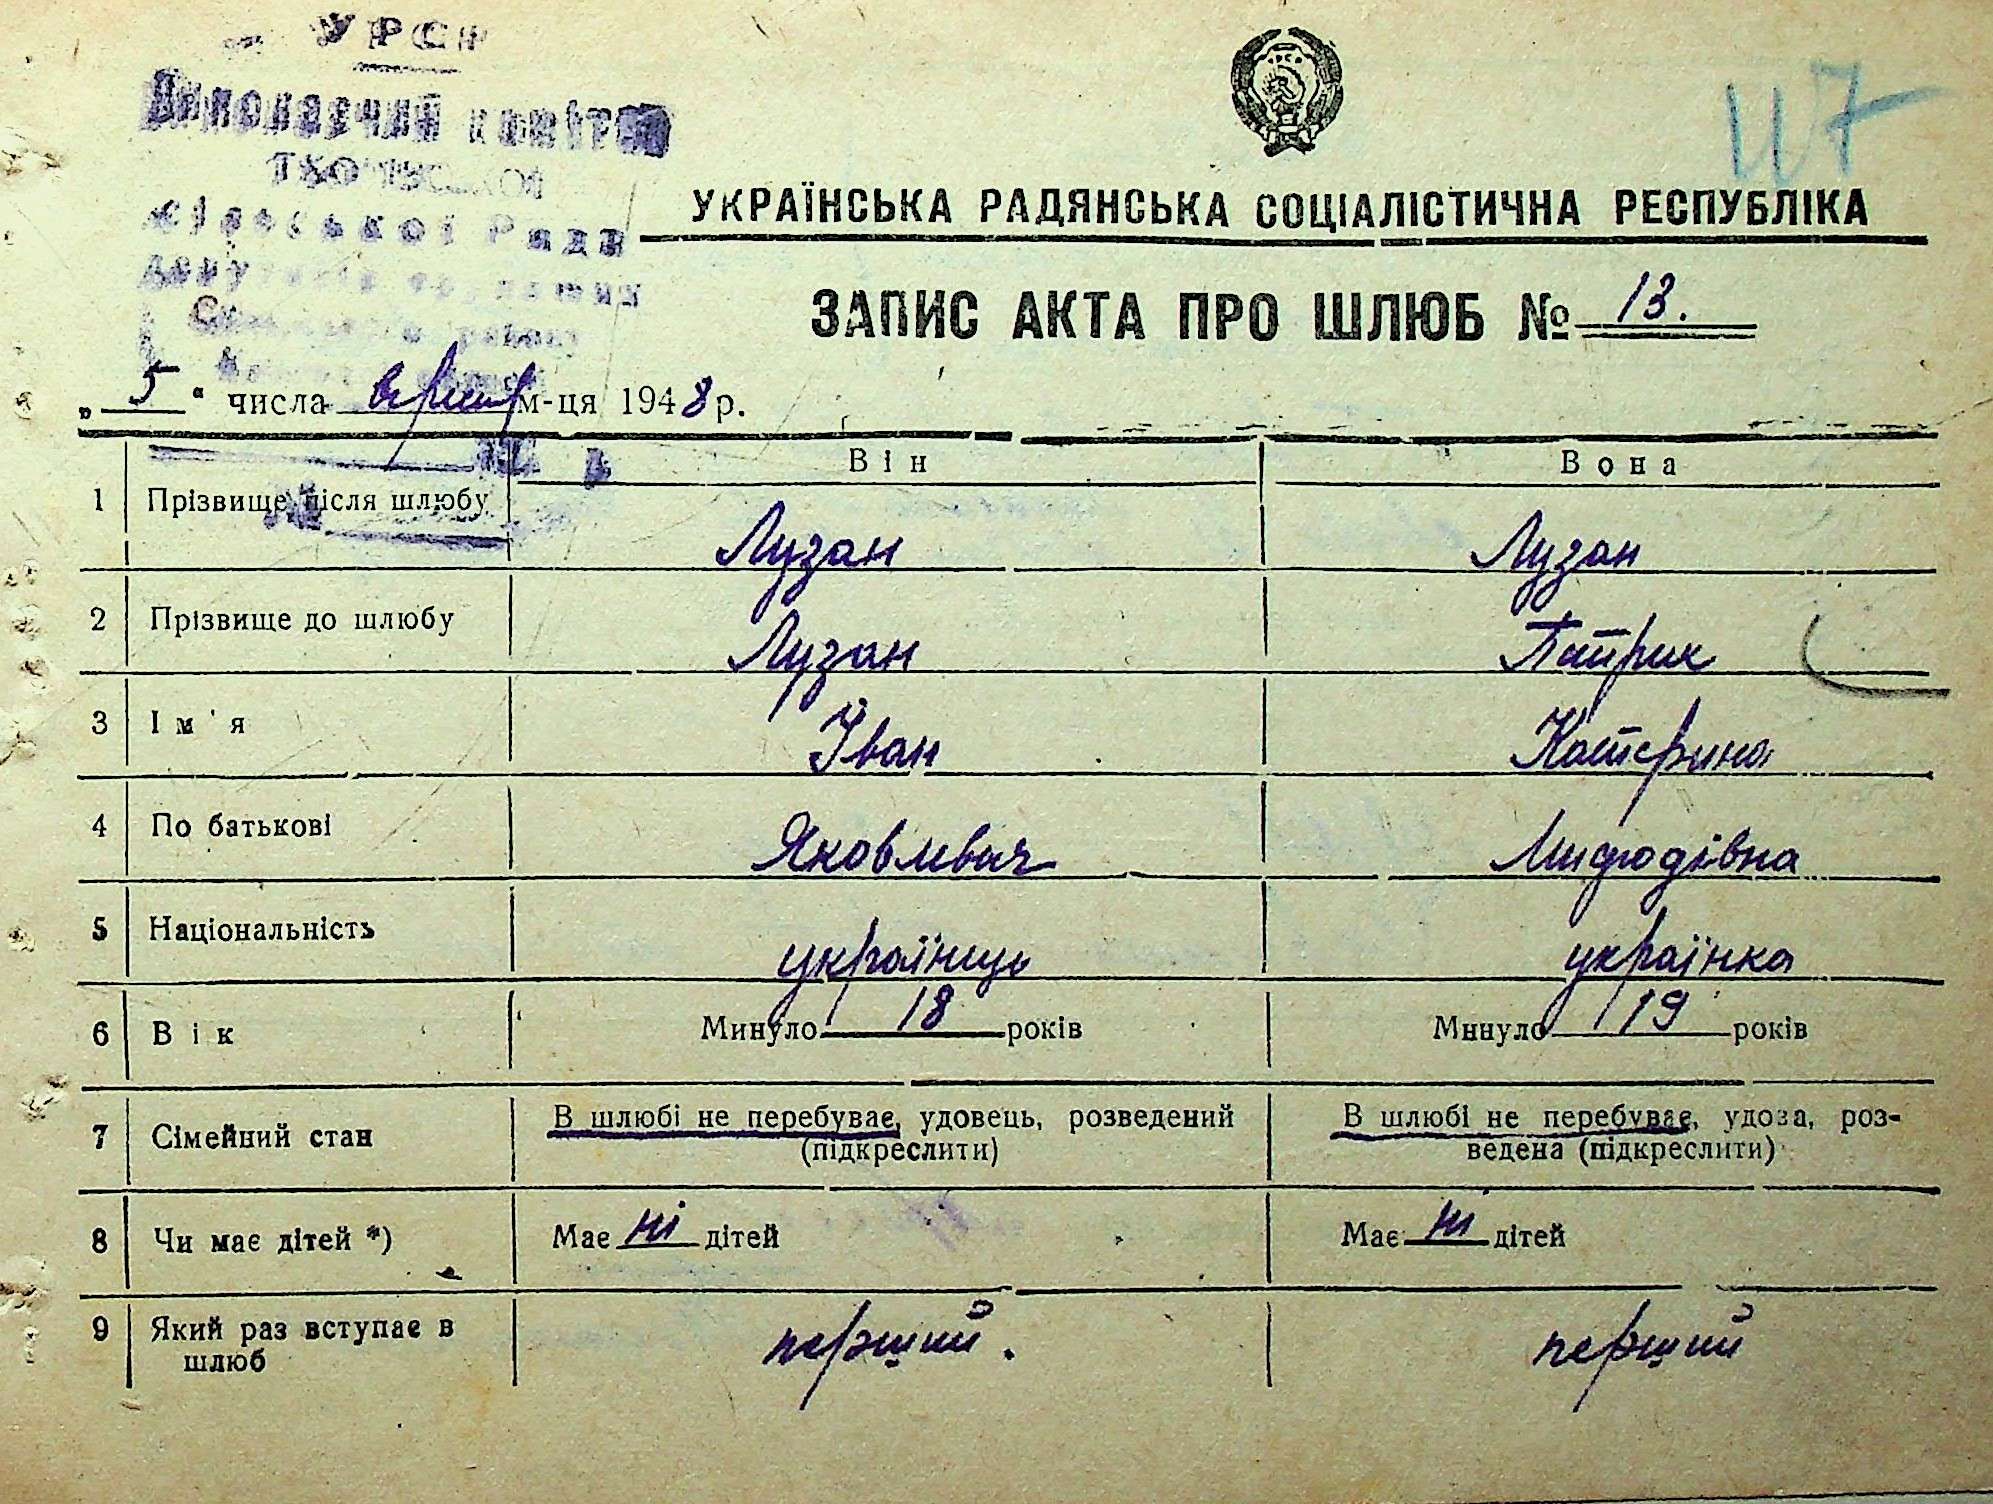 УРСР
Виконавчий комітет
Сільської Ради
117
УКРАЇНСЬКА РАДЯНСЬКА СОЦІАЛІСТИЧНА РЕСПУБЛІКА
ЗАПИС АКТА ПРО ШЛЮБ № 13.
„ 5 “ числа м-ця 1948 р.
Він Вона
1 Прізвище після шлюбу Лузан Лузан
2 Прізвище до шлюбу Лузан Патрик
3 Ім'я Іван Катерина
4 По батькові Яковлевич Мифодівна
5 Національність українець українка
6 Вік Минуло 18 років Минуло 19 років
7 Сімейний стан В шлюбі не перебуває, удовець, розведений В шлюбі не перебуває, удова, роз-
(підкреслити) ведена (підкреслити)
8 Чи має дітей *) Має ні дітей Має ні дітей
9 Який раз вступає в перший. перший
шлюб